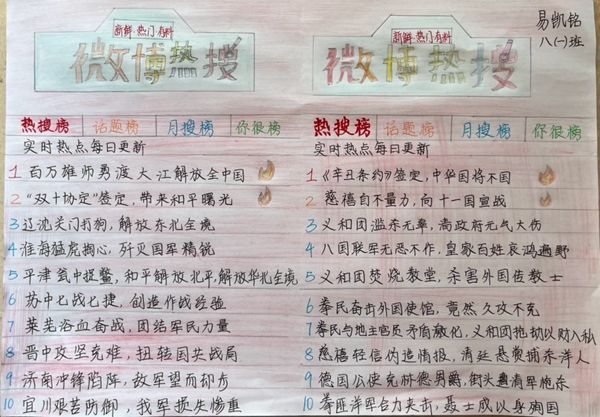 易凯铭
八(一)班
新鲜·热门·有料
微博热搜
热搜榜 话题榜 月搜榜 你很榜
实时热点每日更新
1 百万雄师勇渡大江解放全中国
2 “双十协定”签定，带来和平曙光
3 辽沈关门打狗，解放东北全境
4 淮海猛虎掏心，歼灭国军精锐
5 平津瓮中捉鳖，和平解放北平，解放华北全境
6 苏中七战七捷，创造作战经验
7 莱芜浴血奋战，团结军民力量
8 晋中攻坚克难，扭转国共战局
9 济南冲锋陷阵，敌军望而却步
10 宜川艰苦防御，我军损失惨重
新鲜·热门有料
微博热搜
热搜榜 话题榜 月搜榜 你很榜
实时热点每日更新
1 《辛丑条约》签定，中华国将不国
2 慈禧自不量力，向十一国宣战
3 义和团滥杀无辜，清政府元气大伤
4 八国联军无恶不作，皇家百姓哀鸿遍野
5 义和团焚烧教堂，杀害外国传教士
6 拳民奋击外国使馆，竟然久攻不克
7 拳民与地主官员矛盾激化，义和团抢劫以财入私
8 慈禧轻信伪造情报，清廷悬赏捕杀洋人
9 德国公使克林德男爵，街头遭清军枪杀
10 拳匪洋军合力夹击，聂士成以身殉国